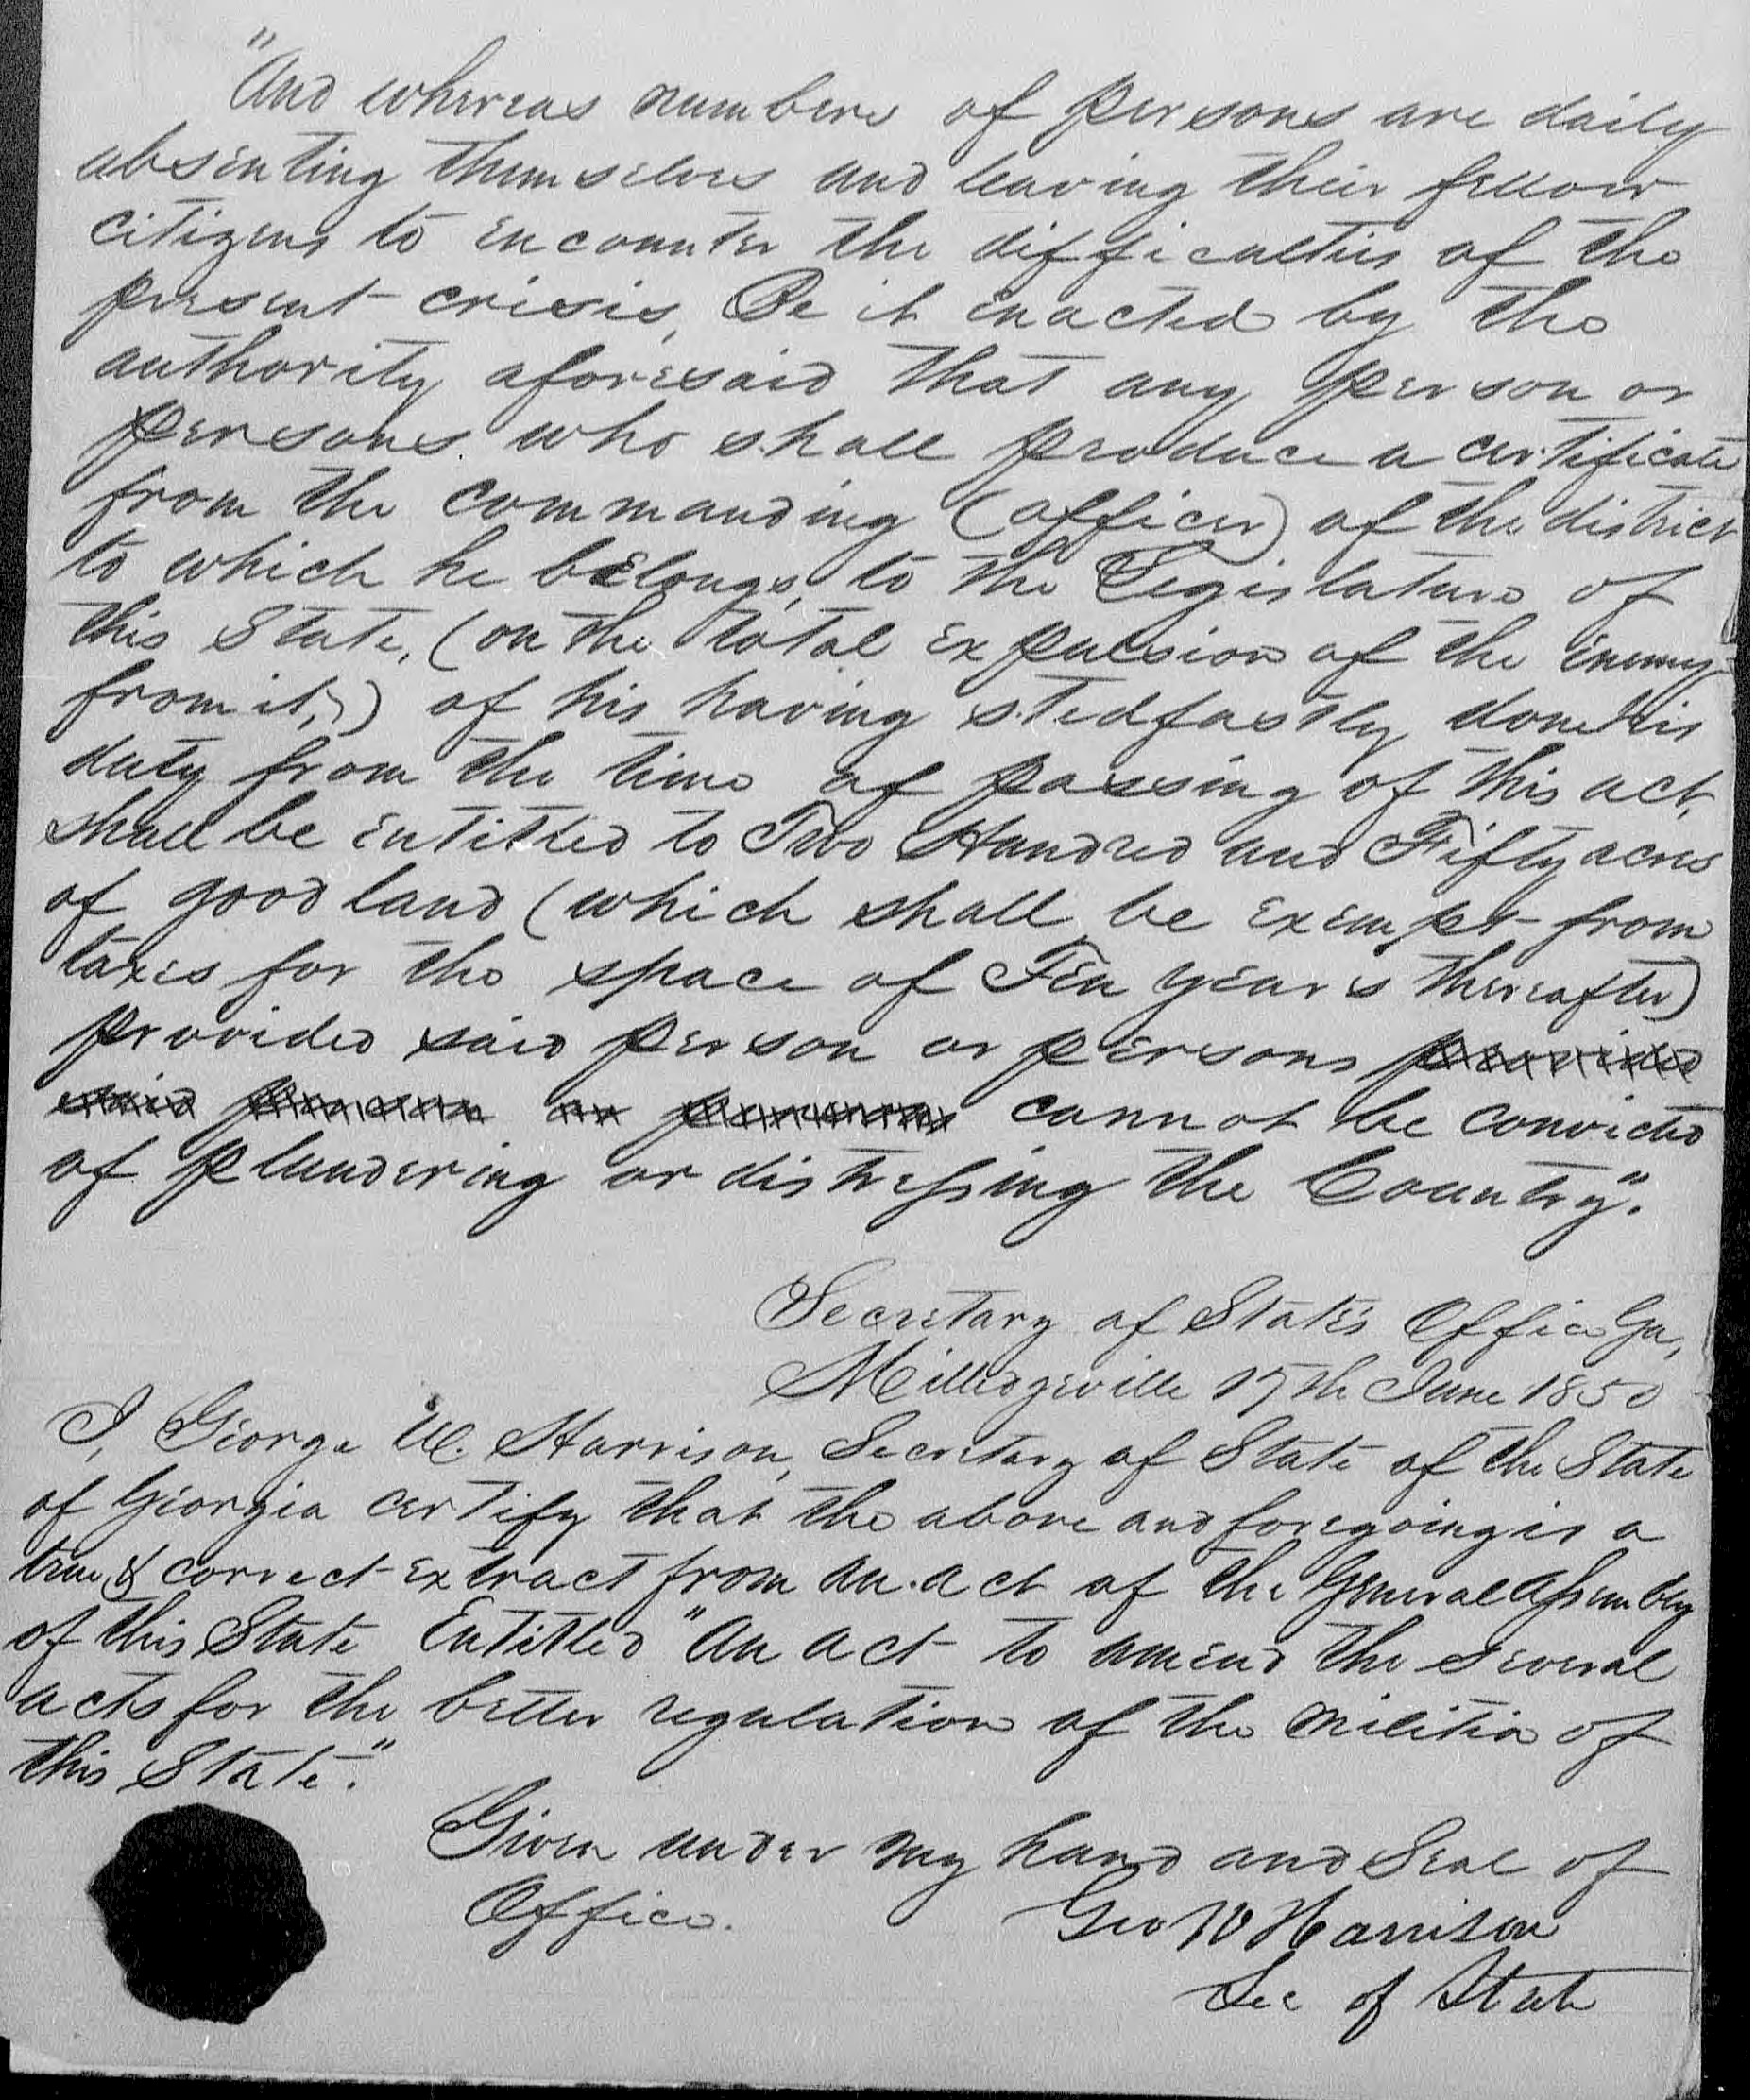 "And whereas numbers of persons are daily
absenting themselves and leaving their fellow
citizens to encounter the difficulties of the
present crisis, Be it enacted by the
authority aforesaid that any person or
persons who shall produce a certificate
from the commanding (officer) of the district
to which he belongs, to the Legislature of
this State, (on the total expulsion of the enemy
from it,) of his having stedfastly done his
duty from the time of passing of this act,
shall be entitled to Two Hundred and Fifty acres
of good land (which shall be exempt from
taxes for the space of Ten years thereafter)
provided said person or persons provided
said person or persons cannot be convicted
of plundering or distressing the Country".
Secretary of State's Office Ga,
Milledgeville 17th June 1850
I, George W. Harrison, Secretary of State of the State
of Georgia certify that the above and foregoing is a
true & correct extract from an act of the General Assembly
of this State Entitled "An act to amend the several
acts for the better regulation of the militia of
this State."
Given under my hand and Seal of
Office.
Geo W Harrison
Sec of State